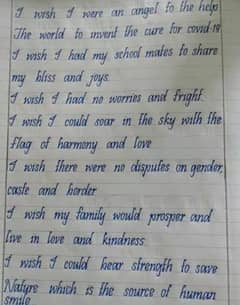 I wish I were an angel to the help
The world to invent the cure for covid-19
I wish I had my school mates to share
my bliss and joys.
I wish I had no worries and fright.
I wish I could soar in the sky with the
flag of harmony and love
I wish there were no disputes on gender,
caste and border
I wish my family would prosper and
live in love and kindness.
I wish I could bear strength to save
Nature which is the source of human
smile